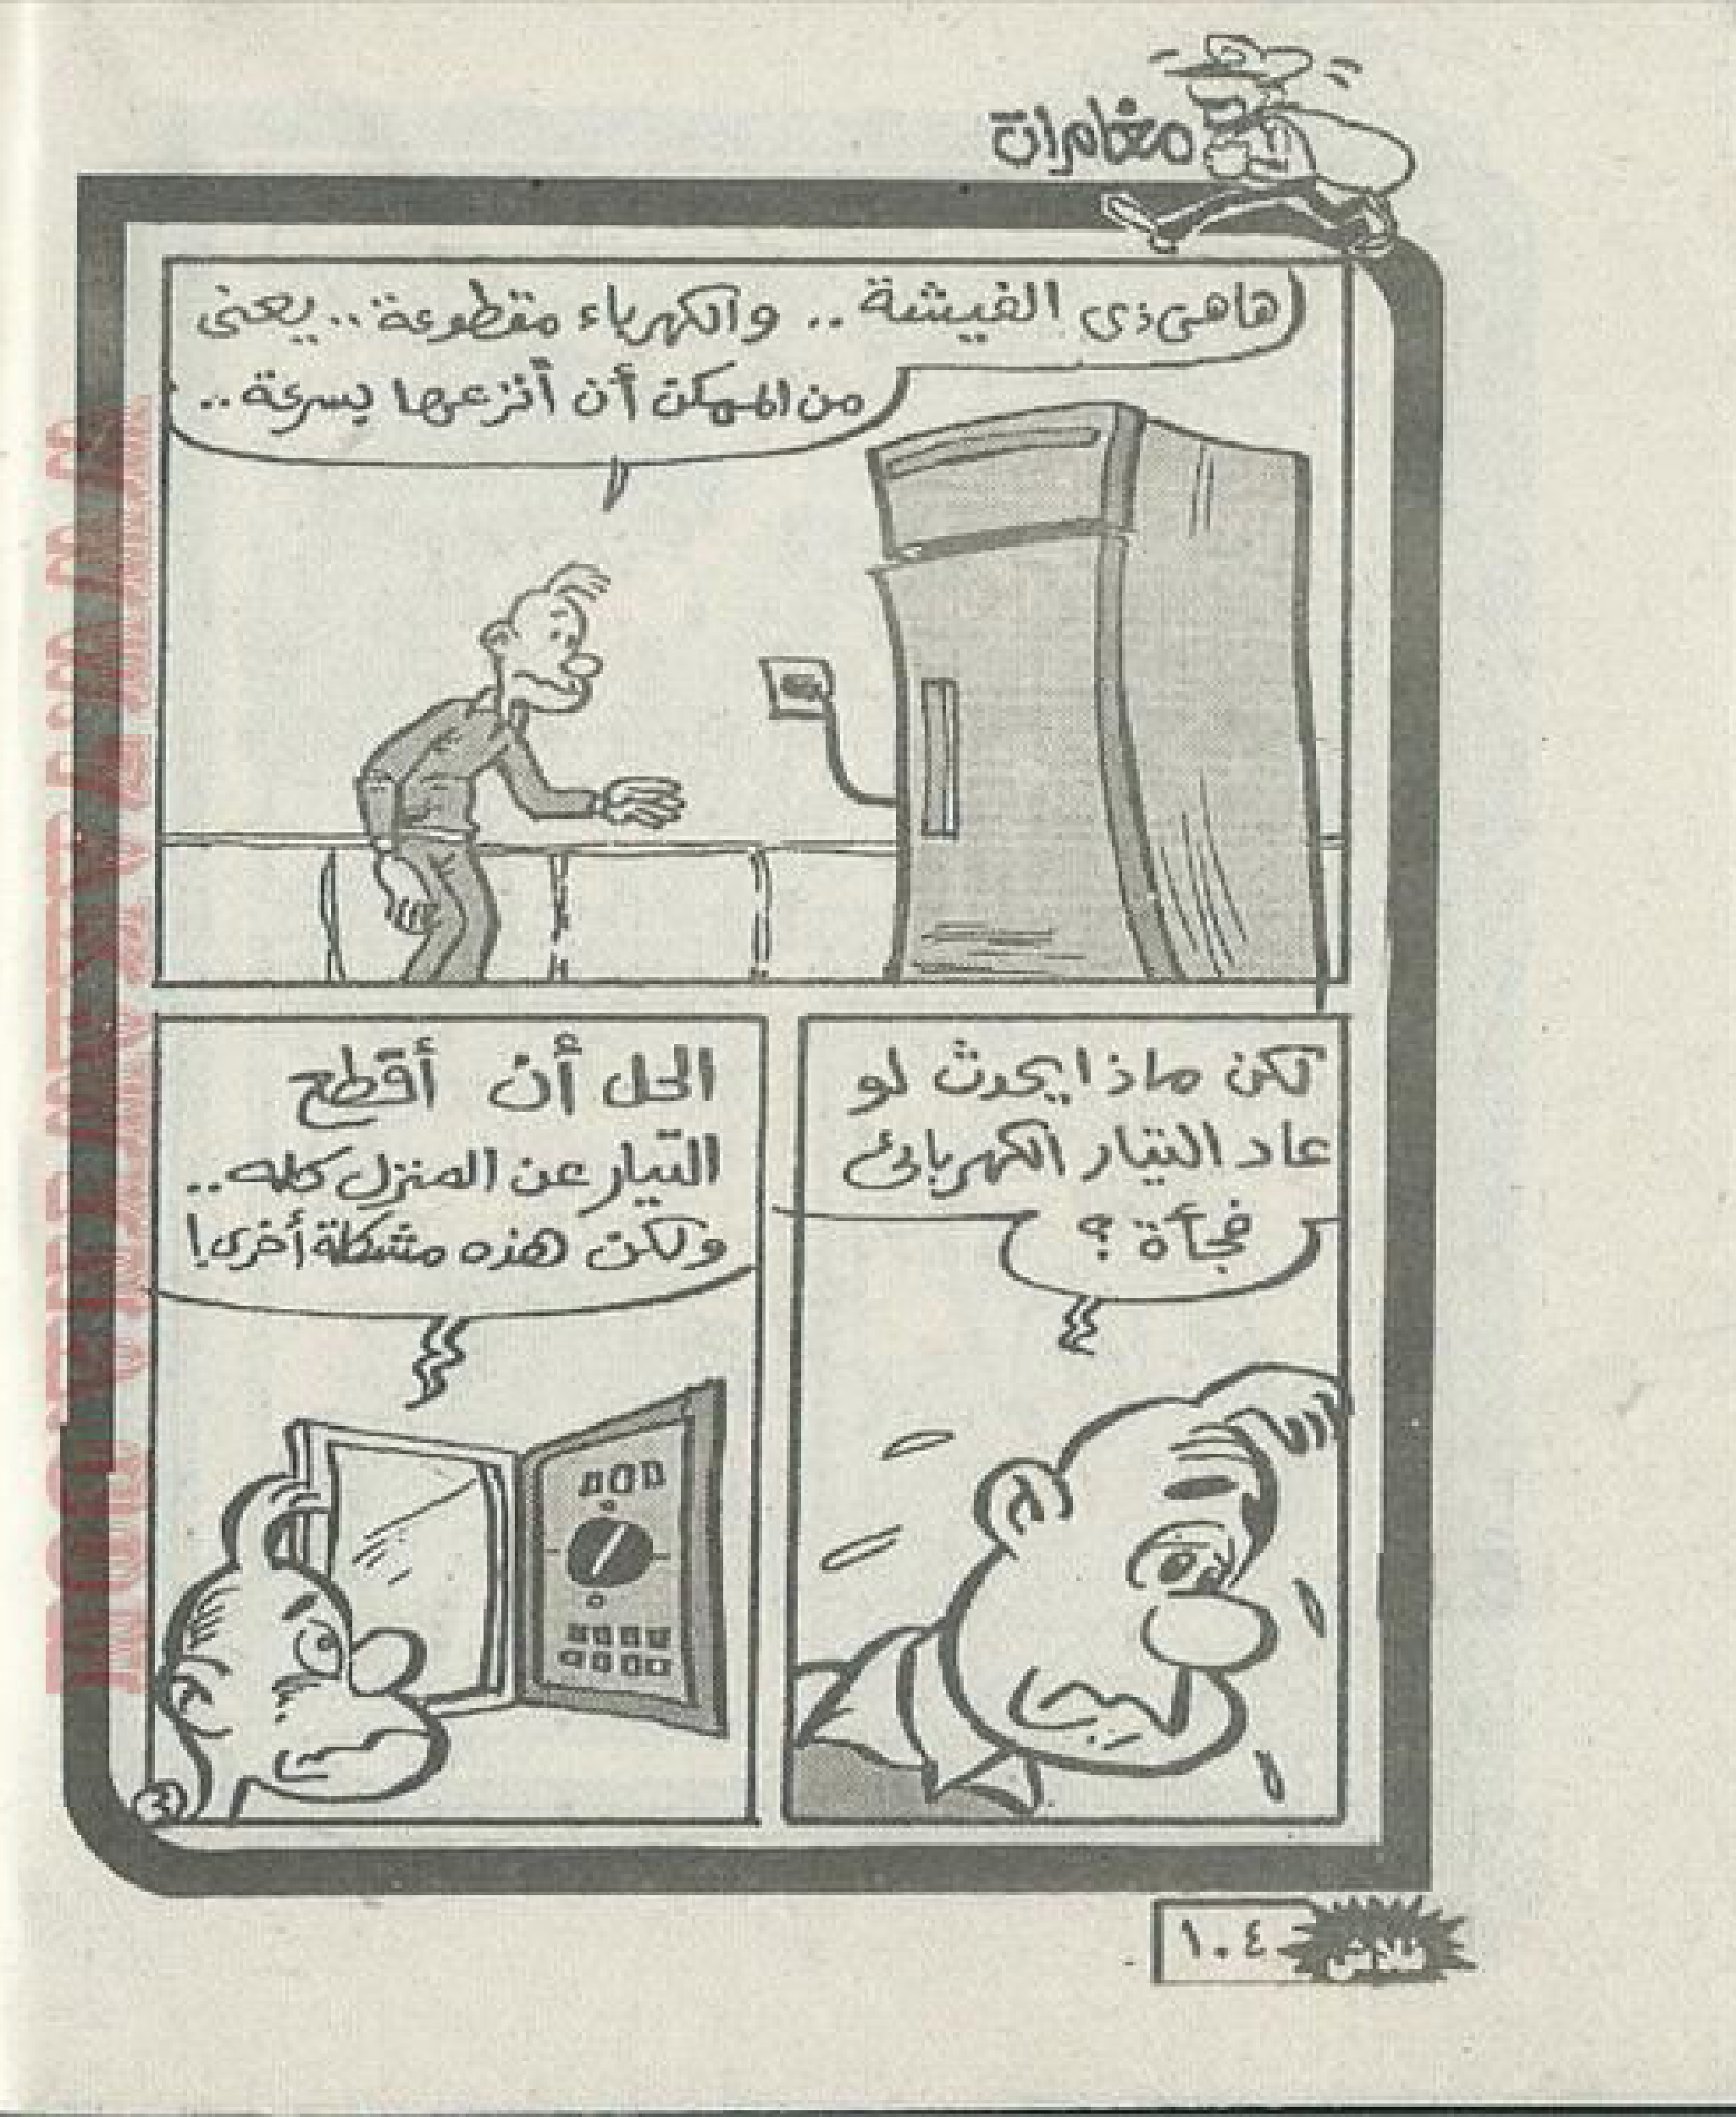 مغامرات
هاهى ذى الفيشة .. والكهرباء مقطوعة .. يعنى
من الممكن أن أنزعها بسرعة ..
لكن ماذا يحدث لو
عاد التيار الكهربائى
فجأة ؟
الحل أن أقطع
التيار عن المنزل كله ..
ولكن هذه مشكلة أخرى !
٣
فلاش
١٠٤